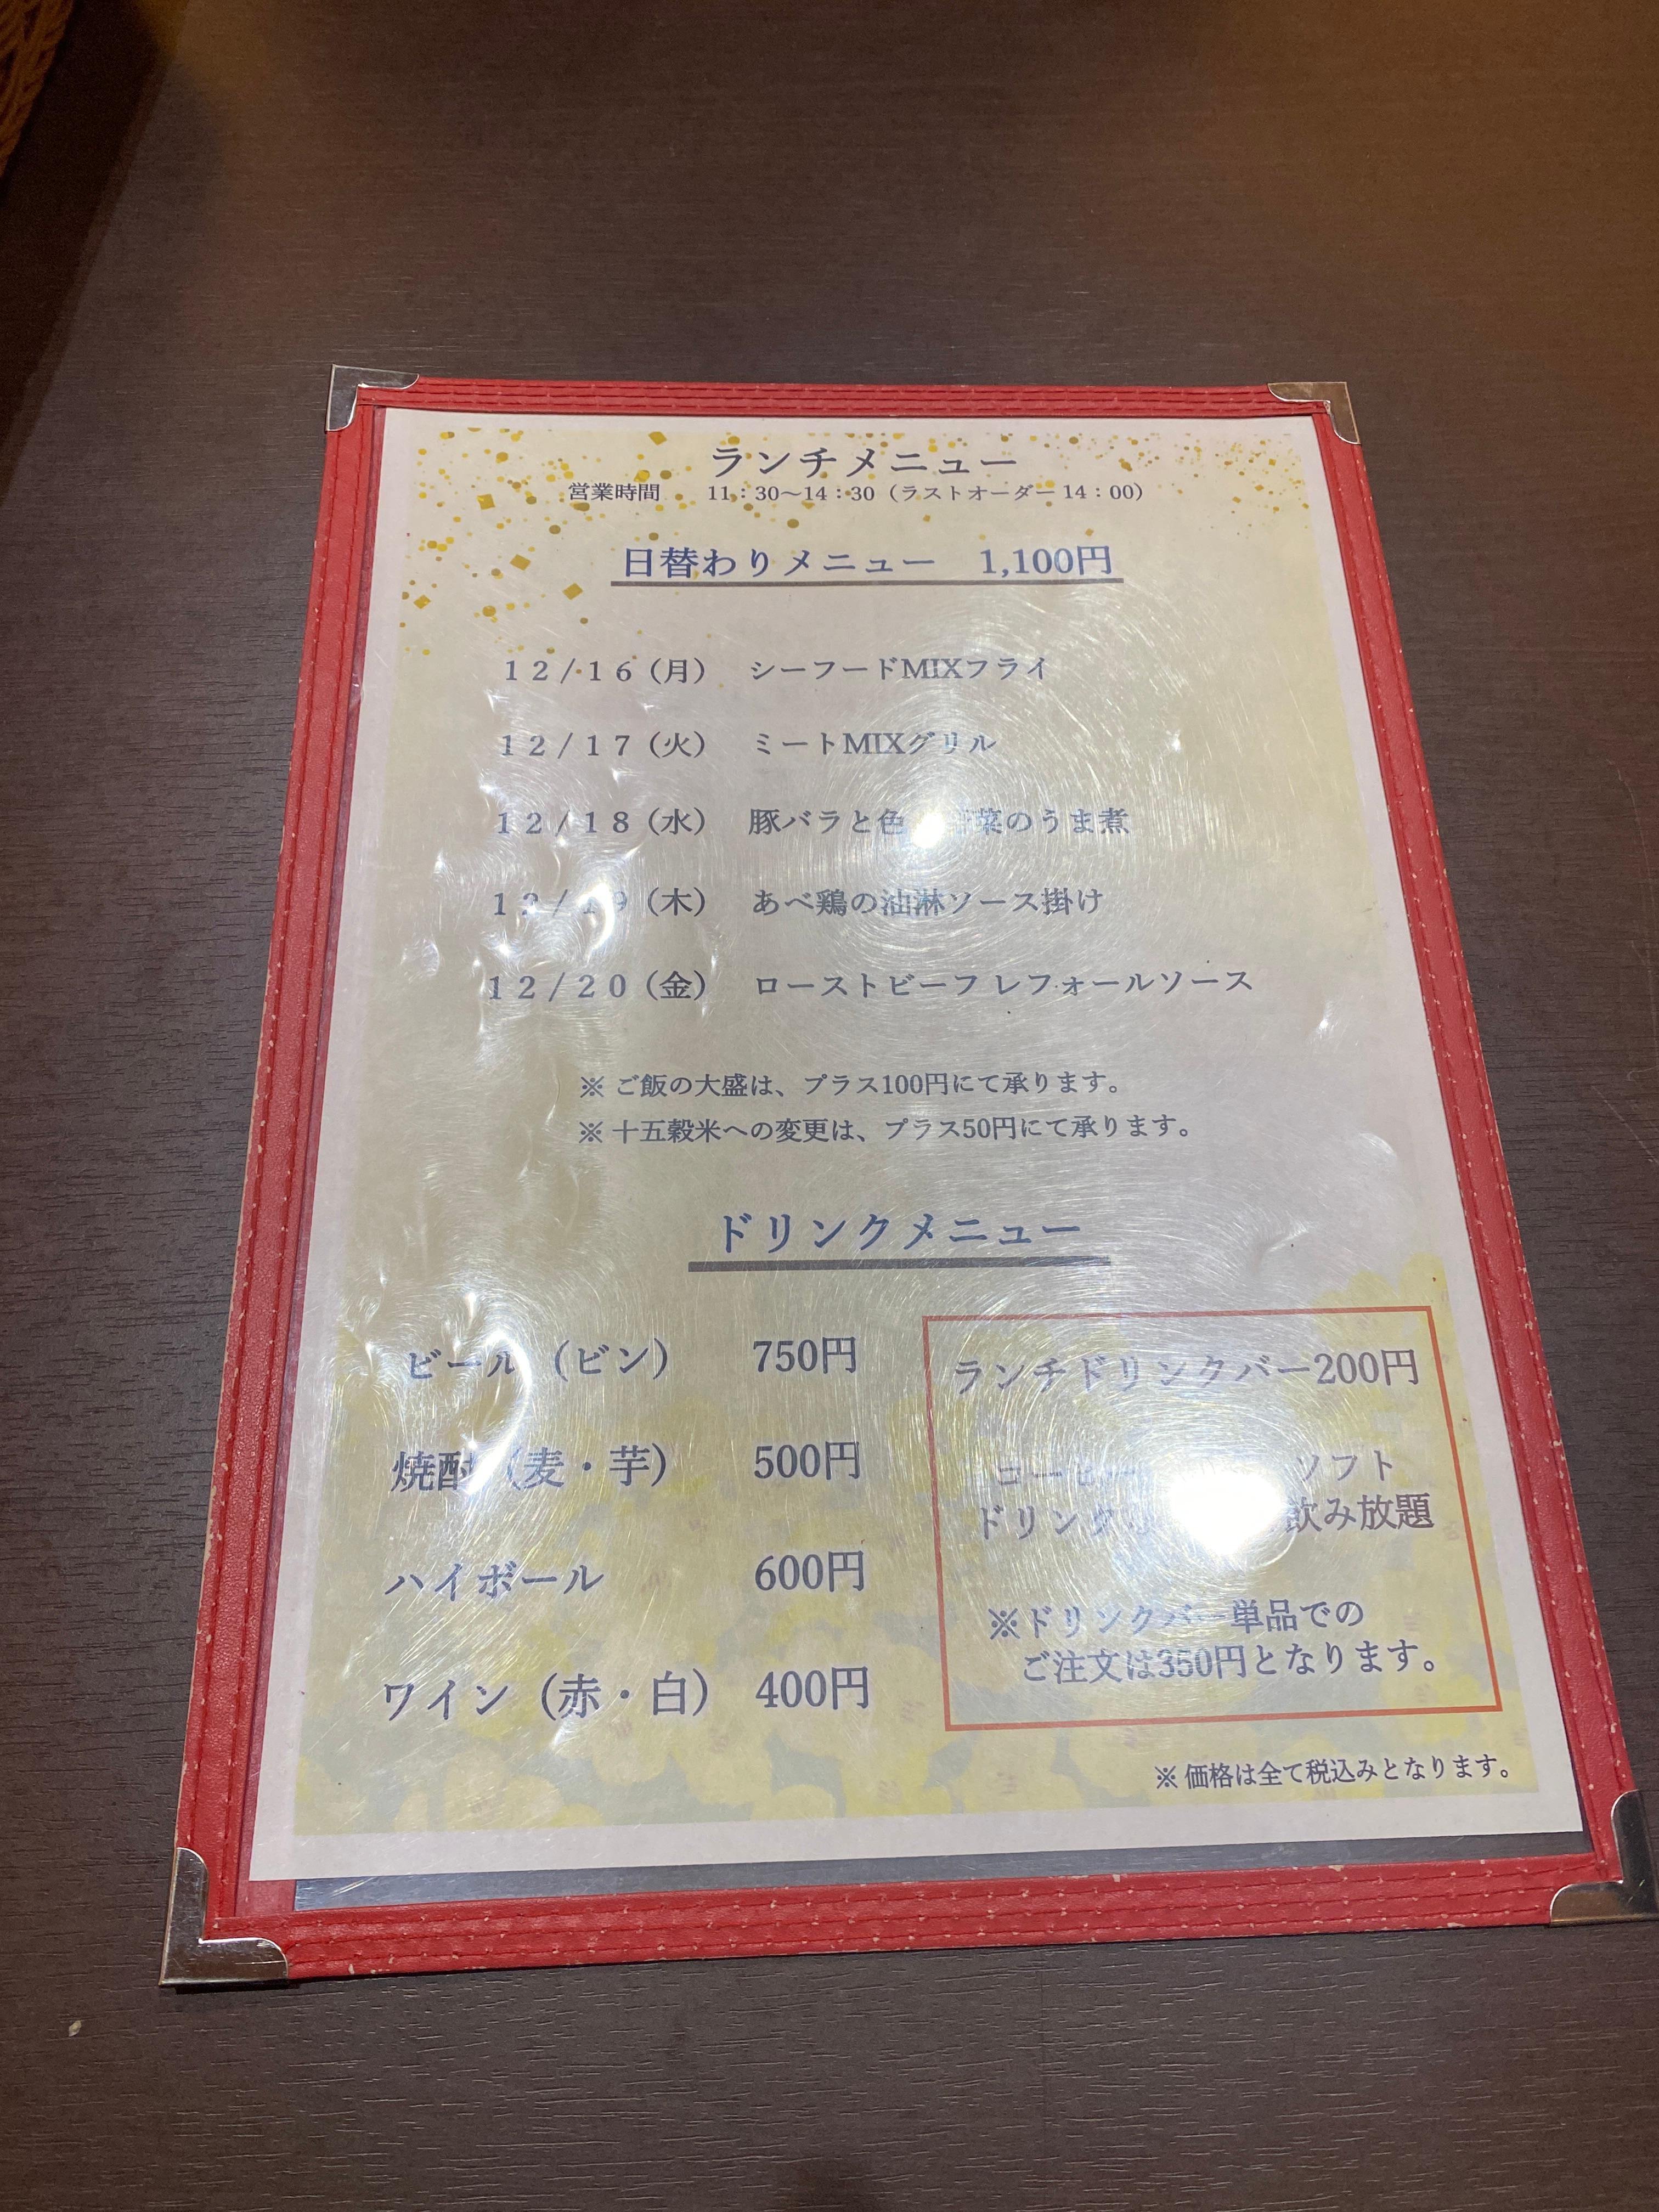 ランチメニュー
営業時間　11：30～14：30（ラストオーダー 14：00）
日替わりメニュー　1,100円
１２/１６（月）　シーフードMIXフライ
１２/１７（火）　ミートMIXグリル
１２/１８（水）　豚バラと色 菜のうま煮
１２/１９（木）　あべ鶏の油淋ソース掛け
１２/２０（金）　ローストビーフ レフォールソース
※ ご飯の大盛は、プラス100円にて承ります。
※ 十五穀米への変更は、プラス50円にて承ります。
ドリンクメニュー
ビール（ビン）　750円
焼酎（麦・芋）　500円
ハイボール　600円
ワイン（赤・白）　400円
ランチドリンクバー200円
コーヒー ソフト
ドリンク 飲み放題
※ドリンクバー単品での
ご注文は350円となります。
※ 価格は全て税込みとなります。